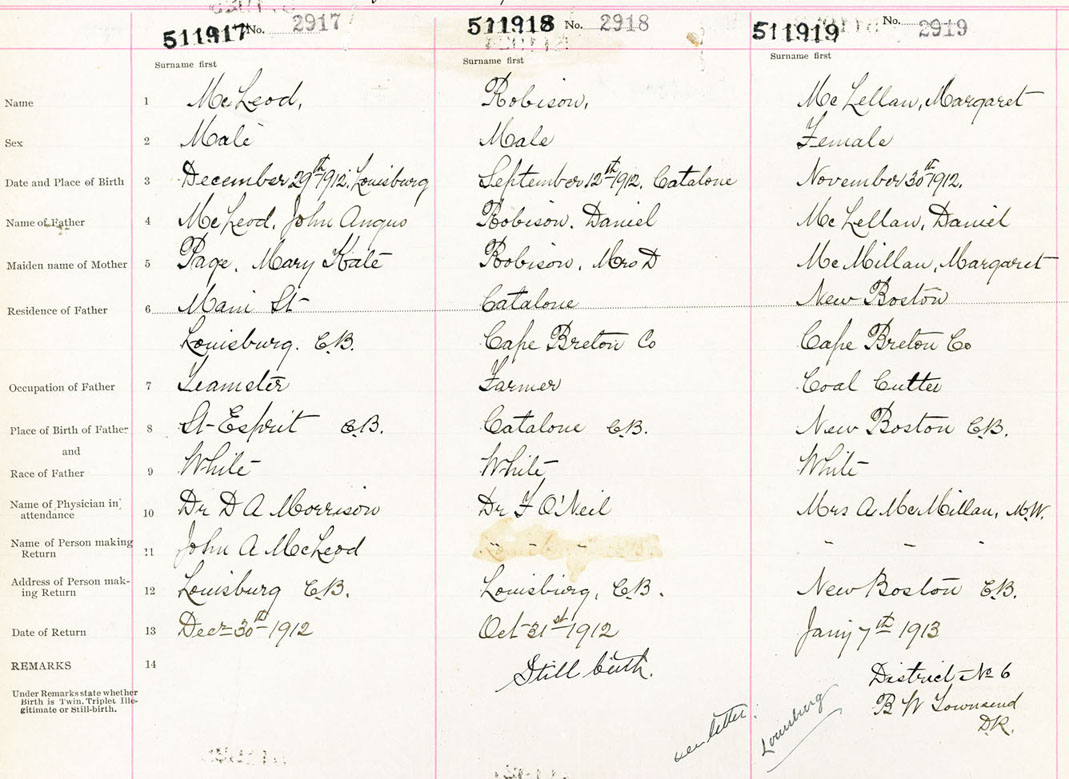 511917 No. 2917 511918 No. 2918 511919 No. 2919
Surname first Surname first Surname first
Name 1 McLeod, Robison, McLellan, Margaret
Sex 2 Male Male Female
Date and Place of Birth 3 December 29th 1912. Louisburg September 12th 1912. Catalone November 30th 1912.
Name of Father 4 McLeod, John Angus Robison. Daniel McLellan, Daniel
Maiden name of Mother 5 Page, Mary Kate Robison, Mrs D McMillan, Margaret
Residence of Father 6 Main St Catalone New Boston
Louisburg. C.B. Cape Breton Co Cape Breton Co
Occupation of Father 7 Teamster Farmer Coal Cutter
Place of Birth of Father 8 St Esprit C.B. Catalone C.B. New Boston C.B.
and
Race of Father 9 White White White
Name of Physician in attendance 10 Dr D A Morrison Dr F O'Neil Mrs A McMillan, M.W.
Name of Person making Return 11 John A McLeod " " " " " "
Address of Person making Return 12 Louisburg C.B. Louisburg, C.B. New Boston C.B.
Date of Return 13 Decr 30th 1912 Oct 31st 1912 Jany 7th 1913
REMARKS 14 Still birth. District No 6
Under Remarks state whether
Birth is Twin. Triplet Ille-
gitimate or Still-birth.
B W Townsend
D.R.
letter.
Louisburg